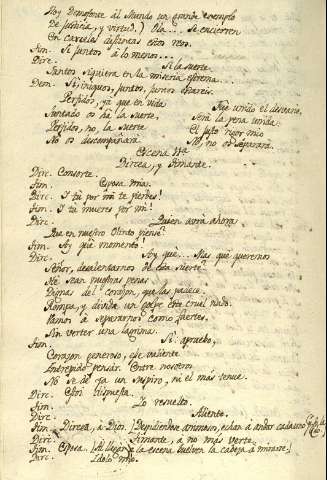 Hoy Demofonte al Mundo un grande exemplo
De justicia, y virtud.) Ola... Se encierren
En carceles distintas estos reos.
Tim. Si juntos à lo menos...
Dirc. Si la suerte
Juntos siquiera en la miseria estrema...
Dem. Si, iniquos, juntos, juntos estareis.
Perfidos, ya que en vida Fue unido el deseo
Juntado os ha la suerte Será la pena unida
Perfidos, no, la suerte El justo rigor mio
No os desacompañará No, no os separará.
Escena 11ª
Dircea, y Timante.
Dirc. Consorte.
Tim. Esposa mia.
Dirc. I tú por mi te pierdes!
Tim. I tú mueres por mi!
Dirc. Quien avrá ahora
Que en nuestro Olinto piense?
Tim. Ay què momento!
Dirc. Ay què... Mas què queremos
Señor, desalentarnos de esta suerte?
He sean muchas penas
Dignas del corazon, que las padece.
Rompa, y divida un golpe este cruel nudo.
Vamos à separarnos como fuertes.
Sin verter una lagrima.
Tim. Si: apruebo,
Corazon generoso, ese valiente
Intrepido pensar. Entre nosotros
No se de ya un suspiro, ni el mas tenue.
Dirc. Estoi dispuesta.
Tim. Yo resuelto.
Dirc. Aliento.
Tim. Dircea, à Dios. [Despidiendose animosos, echan à andar cada uno
Dirc. Timante, à no mas verte.
Tim. Esposa. [Al llegar à la escena buelven la cabeza à mirarse]
Dirc. Idolo mio.